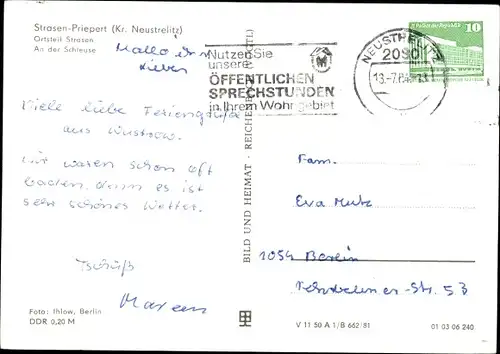 Strasen-Priepert (Kr. Neustrelitz)
Ortsteil Strasen
An der Schleuse
Hallo ihr
Lieben
Viele liebe Feriengrüße
aus Wustrow.
Wir waren schon oft
baden, denn es ist
sehr schönes Wetter.
Tschüß
Mareen
Foto: Ihlow, Berlin
DDR 0,20 M
BILD UND HEIMAT · REICHENBACH (VOGTL)
Nutzen Sie
unsere
ÖFFENTLICHEN
SPRECHSTUNDEN
in Ihrem Wohngebiet
NEUSTRELITZ
2080
13.-7.
10
Fam.
Eva Mutz
1054 Berlin
-Str. 53
V 11 50 A 1/B 662/81
01 03 06 240